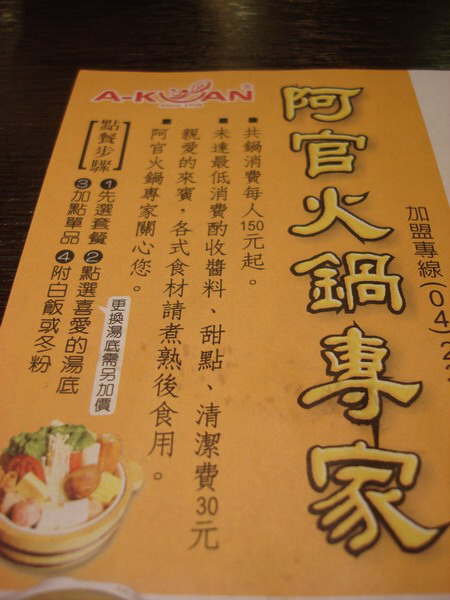 A-KUAN
阿官火鍋專家
加盟專線(04)2
■共鍋消費每人150元起。
■未達最低消費酌收醬料、甜點、清潔費30元
親愛的來賓,各式食材請煮熟後食用。
■阿官火鍋專家關心您。
[點餐步驟]
❶先選套餐 ❷點選喜愛的湯底
更換湯底需另加價
❸加點單品 ❹附白飯或冬粉